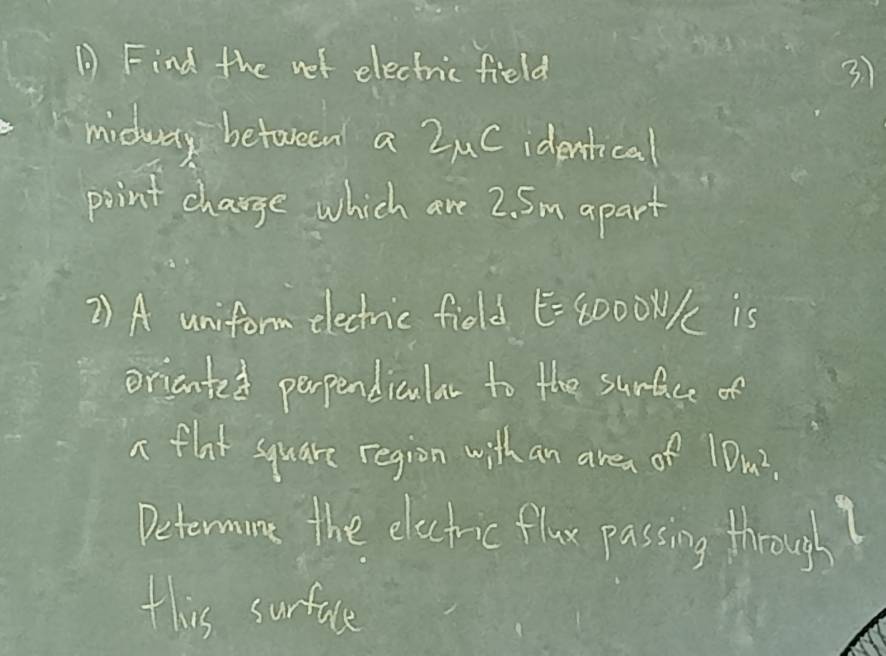 1.) Find the net electric field
midway between a 2μC identical
point charge which are 2.5m apart
2) A uniform electric field E=8000N/C is
oriented perpendicular to the surface of
a flat square region with an area of 10m².
Determine the electric flux passing through
this surface
3)